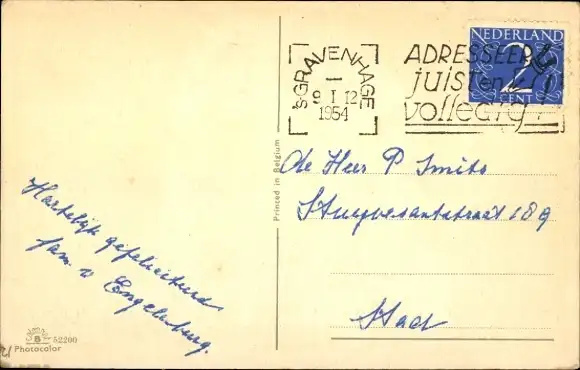 Hartelijk gefeliciteerd
fam. v Engelenburg.
52200
Photocolor
Printed in Belgium
'SGRAVENHAGE
9 I 12
1954
ADRESSEER
juist en
volledig!
NEDERLAND
2
CENT
de Heer P Smits
Stuyvesantstraat 189
Stad